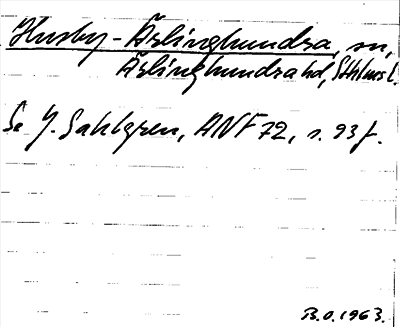 Husby-Ärlinghundra, sn,
Ärlinghundra hd, Sthlms l.
Se J. Sahlgren, ANF 72, s. 93 f.
B.O. 1963.